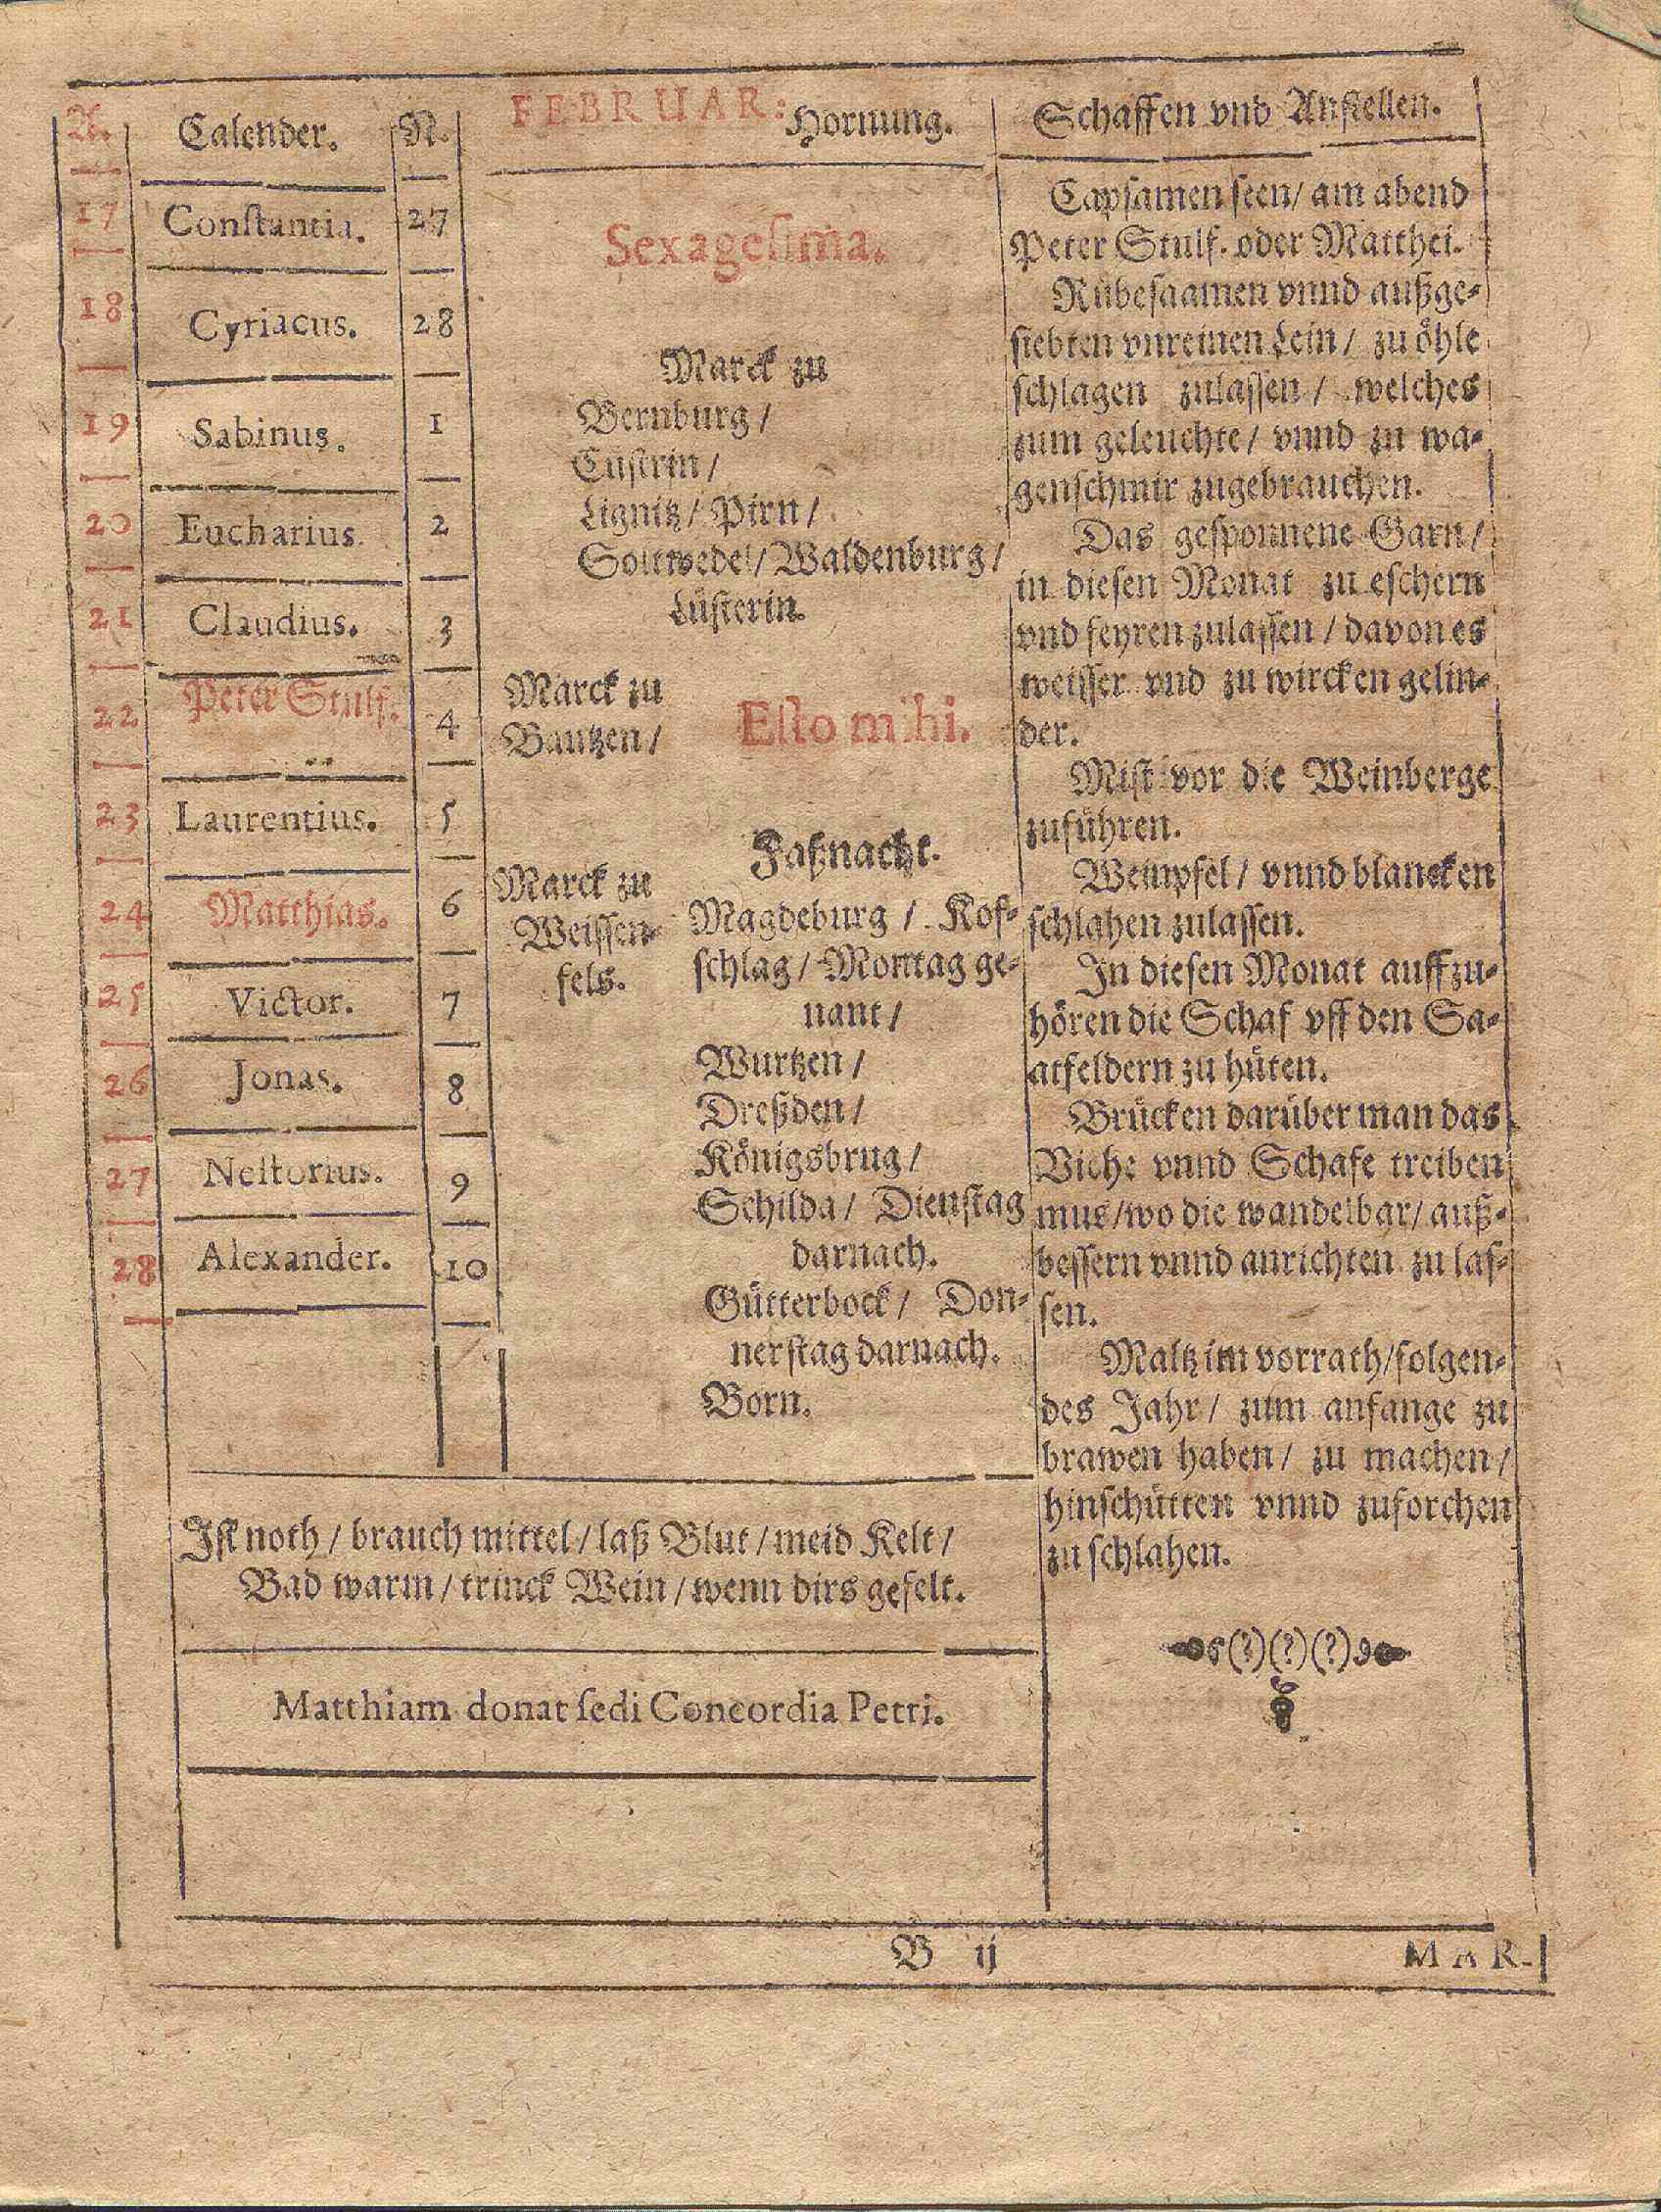 A. Calender. N. FEBRUAR: Hornung. Schaffen vnd Anstellen.
17 Constantia. 27
18 Cyriacus. 28
19 Sabinus. 1
20 Eucharius. 2
21 Claudius. 3
22 Peter Stulf. 4
23 Laurentius. 5
24 Matthias. 6
25 Victor. 7
26 Jonas. 8
27 Nestorius. 9
28 Alexander. 10
Sexagesima.
Marck zu
Bernburg /
Cüstrin /
Lignitz / Pirn /
Soltwedel / Waldenburg /
Lüsterin.
Marck zu
Bautzen /
Esto mihi.
Marck zu
Weissen-
fels.
Faßnacht.
Magdeburg / Kof-
schlag / Montag ge-
nant /
Wurtzen /
Dreßden /
Königsbrug /
Schilda / Dienstag
darnach.
Gütterbock / Don-
nerstag darnach.
Born.
Capsamen seen / am abend
Peter Stulf. oder Matthei.
Rübesaamen vnnd außge-
siebten vnreinen Lein / zu öhle
schlagen zulassen / welches
zum geleuchte / vnnd zu wa-
genschmir zugebrauchen.
Das gesponnene Garn /
in diesen Monat zu eschern
vnd feyren zulassen / davon es
weisser vnd zu wircken gelin-
der.
Mist vor die Weinberge
zuführen.
Weinpfel / vnnd blancken
schlahen zulassen.
In diesen Monat auffzu-
hören die Schaf vff den Sa-
atfeldern zu hüten.
Brücken darüber man das
Viehe vnnd Schafe treiben
mus / wo die wandelbar / auß-
bessern vnnd anrichten zu las-
sen.
Maltz im vorrath / folgen-
des Jahr / zum anfange zu
brawen haben / zu machen /
hinschütten vnnd zuforchen
zu schlahen.
Ist noth / brauch mittel / laß Blut / meid Kelt /
Bad warm / trinck Wein / wenn dirs gefelt.
Matthiam donat sedi Concordia Petri.
B ij MAR-